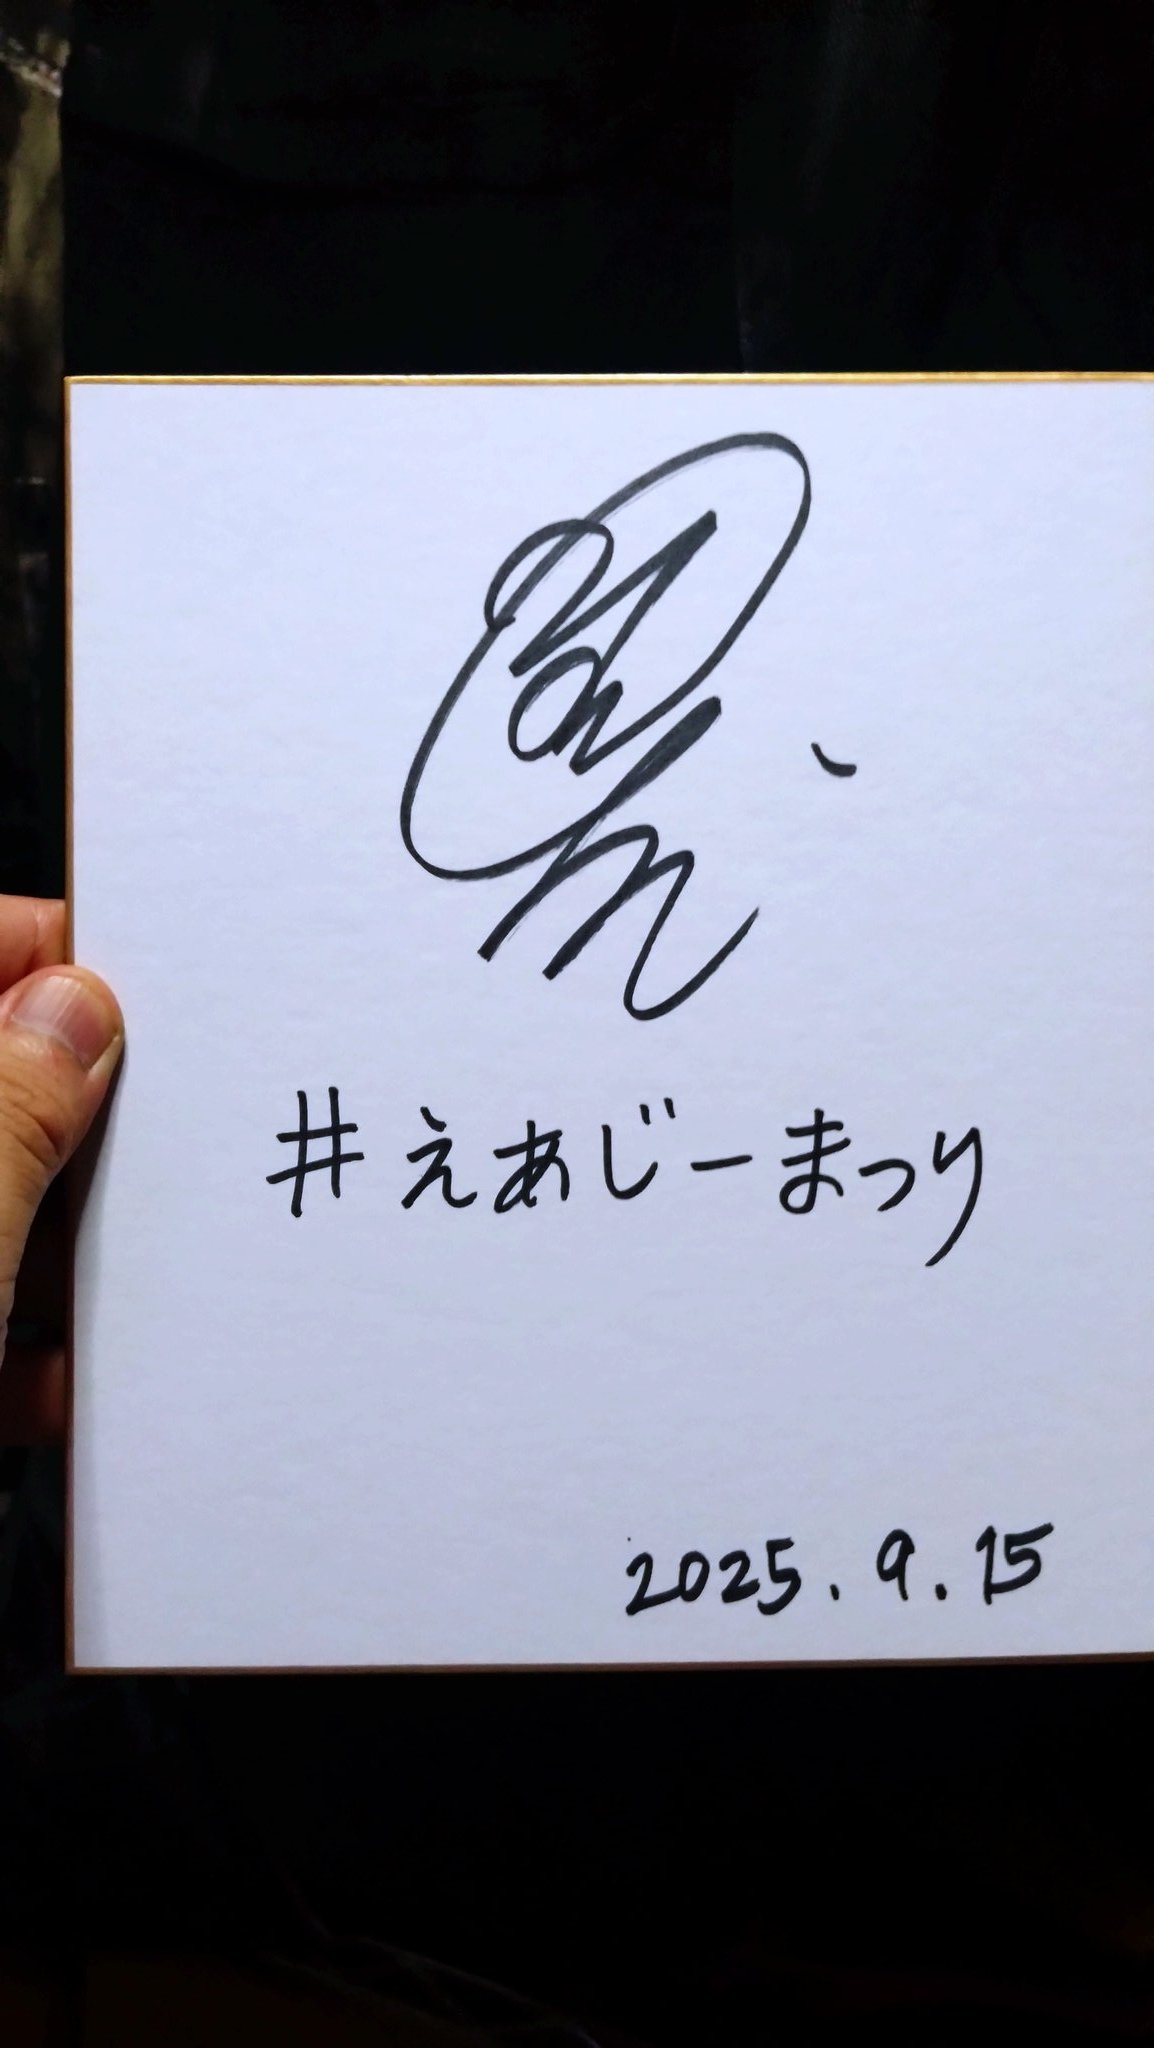 #えあじーまつり
2025.9.15